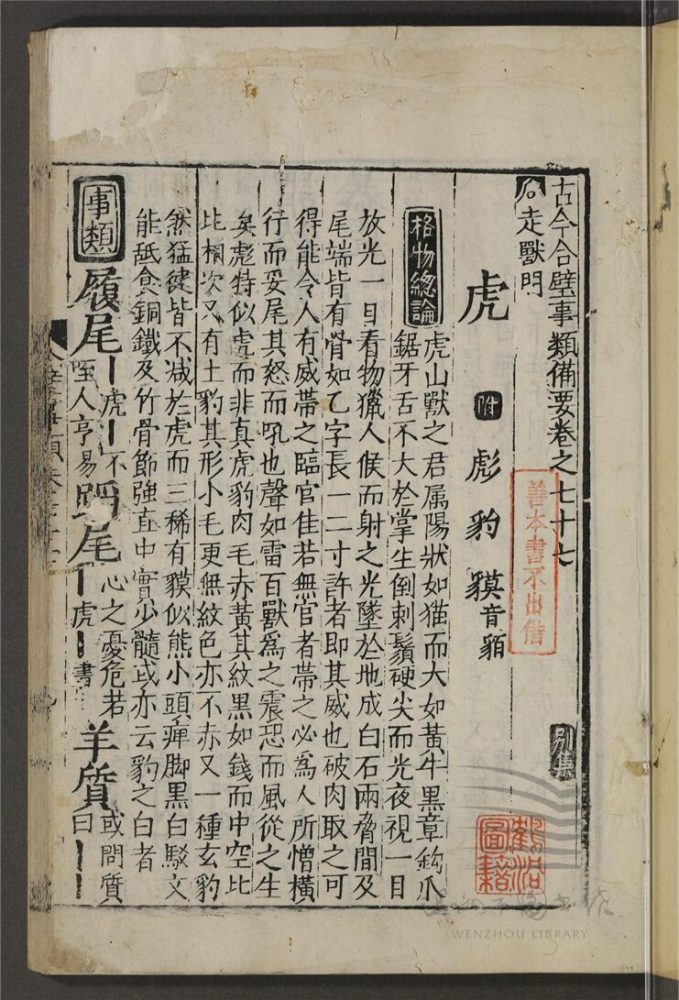 古今合璧事類備要卷之七十七
別集
走獸門
虎 附 彪 豹 貘音貊
格物總論
虎山獸之君属陽狀如猫而大如黃牛黒章鈎爪
鋸牙舌不大於掌生倒刺鬚硬尖而光夜視一目
放光一目看物獵人候而射之光墜於地成白石兩脅間及
尾端皆有骨如乙字長一二寸許者即其威也破肉取之可
得能令人有威帶之臨官佳若無官者帶之必為人所憎橫
行而妥尾其怒而吼也聲如雷百獸為之震恐而風從之生
矣彪特似虎而非真虎豹肉毛赤黃其紋黒如錢而中空比
比相次又有土豹其形小毛更無紋色亦不赤又一種玄豹
然猛健皆不减於虎而三稀有貘似熊小頭痺脚黒白駁文
能舐食銅鐵及竹骨節強直中實少髓或亦云豹之白者
事類
履尾丨虎丨不
咥人亨易
蹈尾
心之憂危若
丨虎丨書
羊質
或問質
曰丨丨
善本書不出借
圖籍
WENZHOU LIBRARY